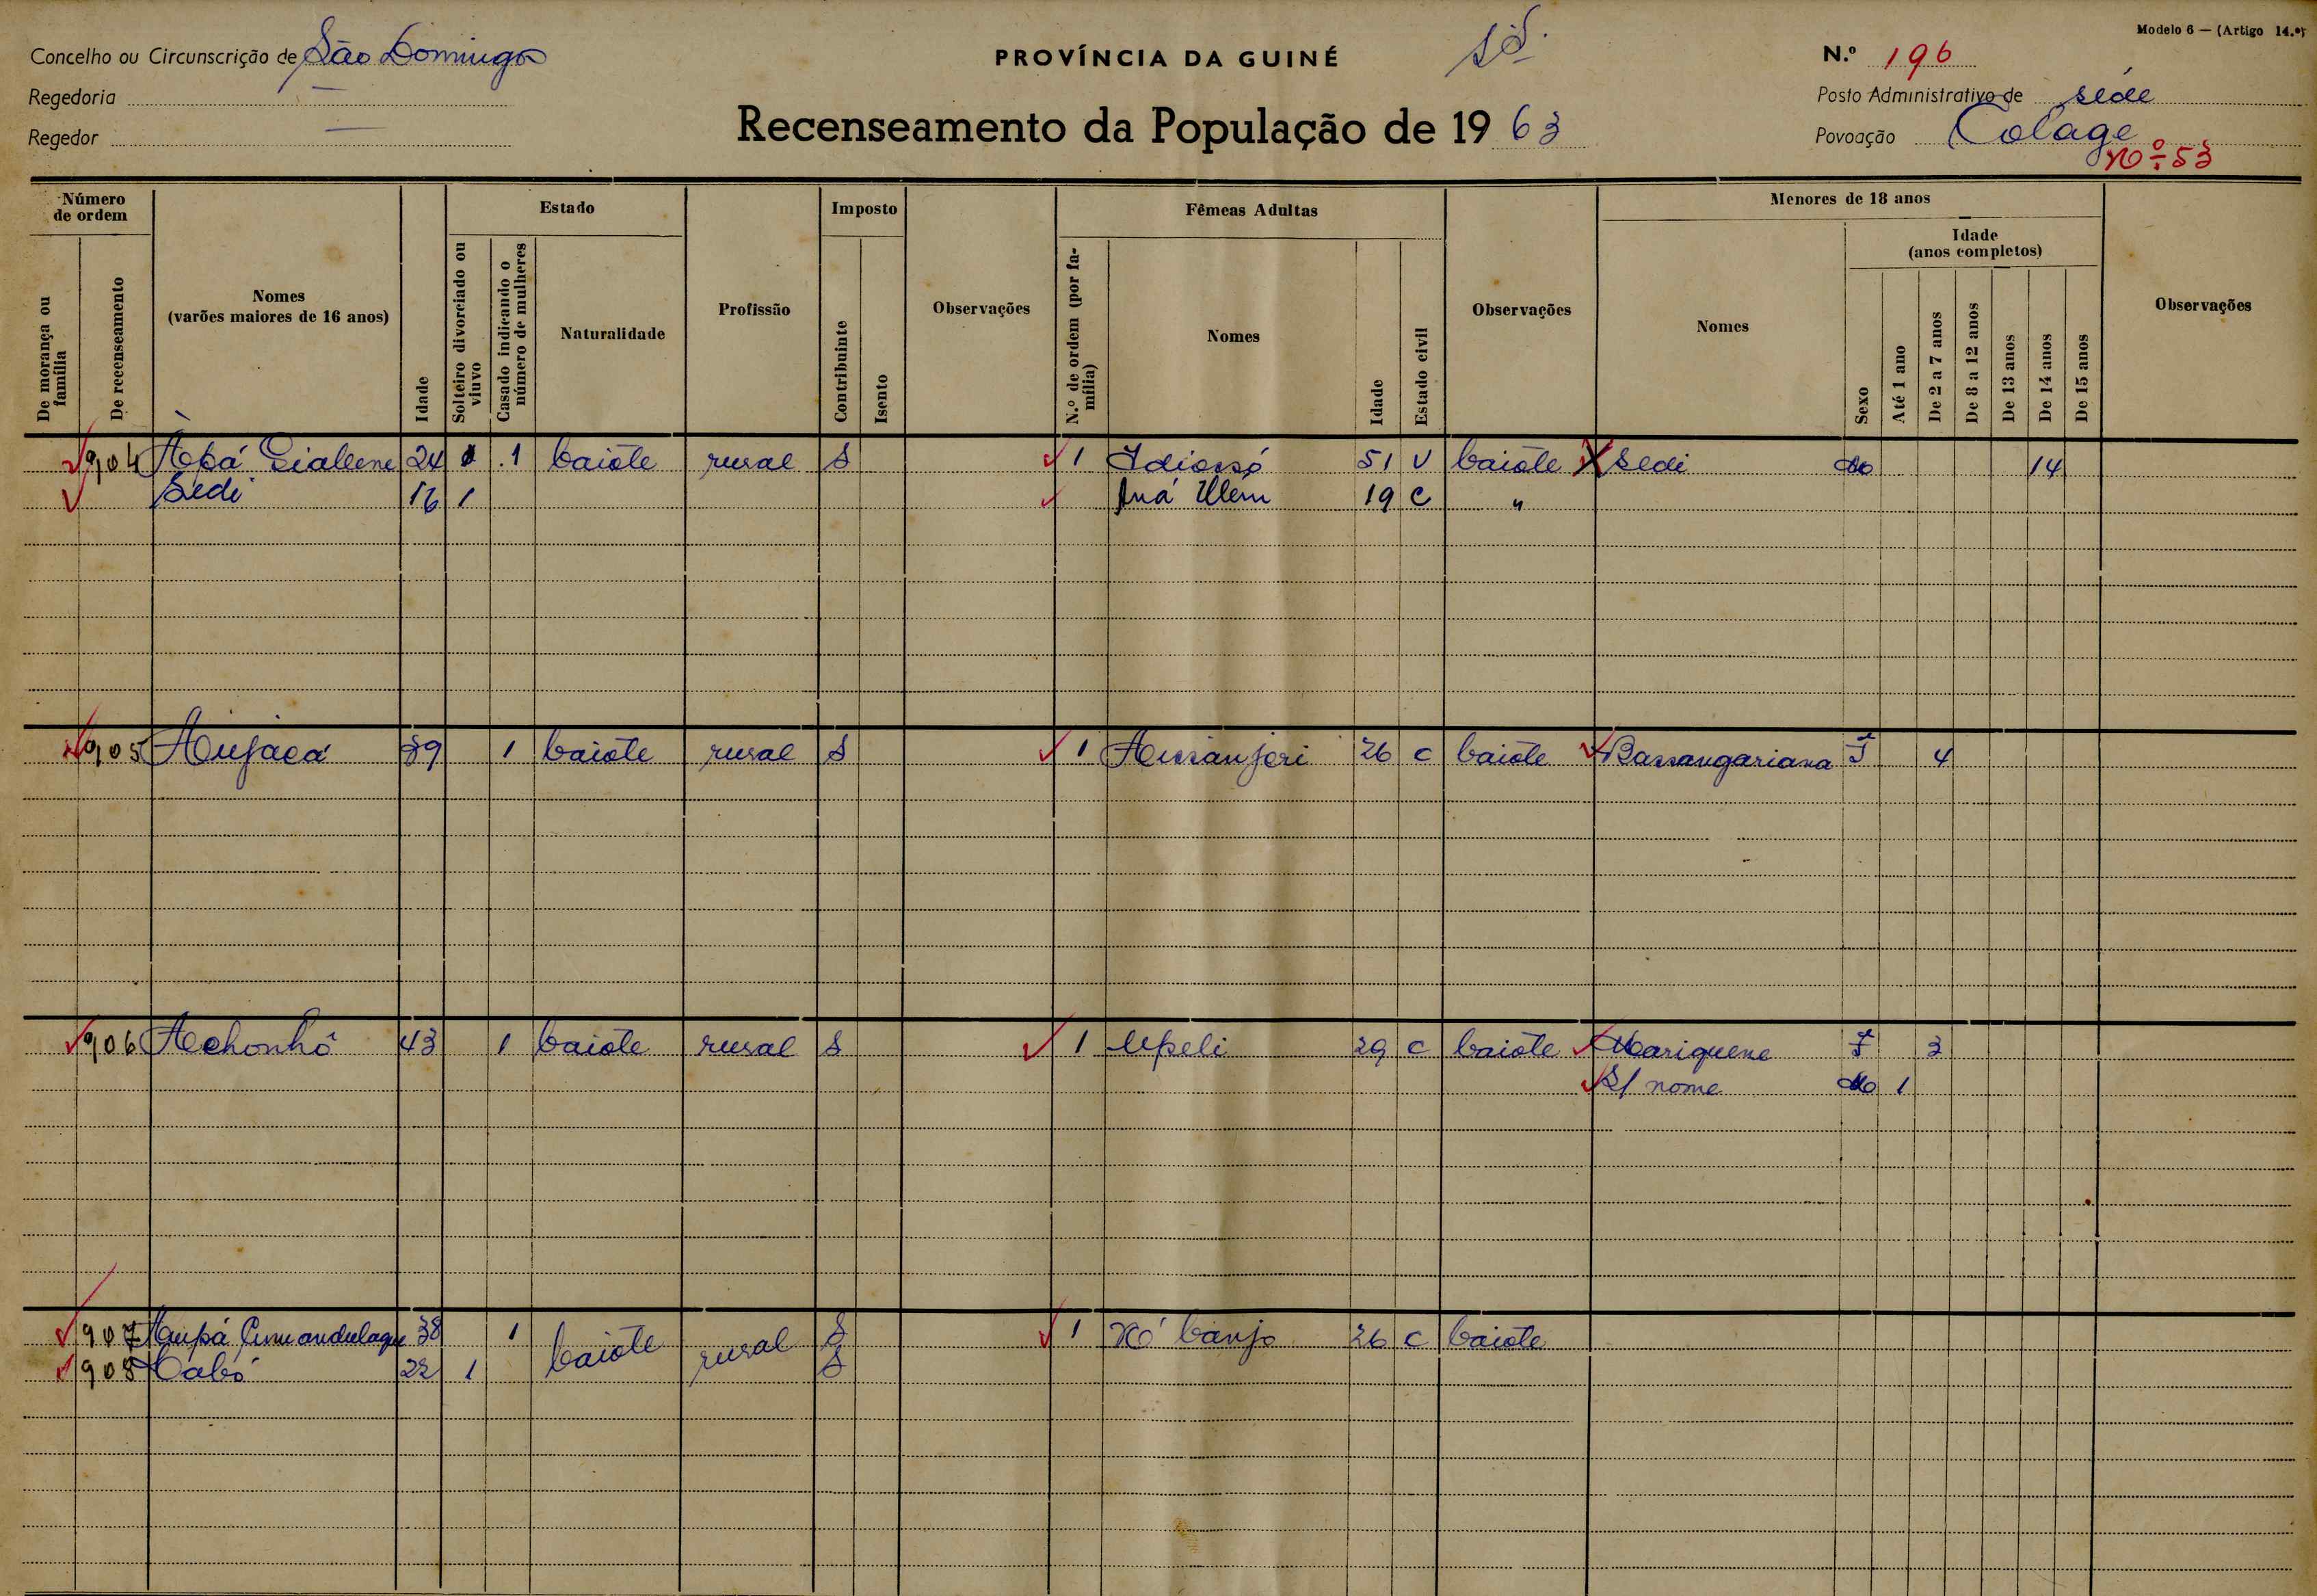 Modelo 6 — (Artigo 14.º)
Concelho ou Circunscrição de São Domingos
PROVÍNCIA DA GUINÉ
N.º 196
Regedoria —
Posto Administrativo de séde
Regedor —
Recenseamento da População de 1963
Povoação Colage
Nº 53
Número de ordem
Estado
Imposto
Fêmeas Adultas
Menores de 18 anos
Idade (anos completos)
De morança ou família
De recenseamento
Nomes (varões maiores de 16 anos)
Idade
Solteiro divorciado ou viuvo
Casado indicando o número de mulheres
Naturalidade
Profissão
Contribuinte
Isento
Observações
N.º de ordem (por família)
Nomes
Idade
Estado civil
Observações
Nomes
Sexo
Até 1 ano
De 2 a 7 anos
De 8 a 12 anos
De 13 anos
De 14 anos
De 15 anos
Observações
904 24 1 baiote rural S 1 51 V baiote Sedi M 14
Sedi 16 1 19 C "
905 Aujacá 39 1 baiote rural S 1 26 C baiote Bassangariana F 4
906 Achonhô 43 1 baiote rural S 1 Upeli 29 C baiote Mariquene F 3
S/ nome M 1
907 Aupá 38 1 baiote rural S 1 26 C baiote
908 Cabó 22 1 S